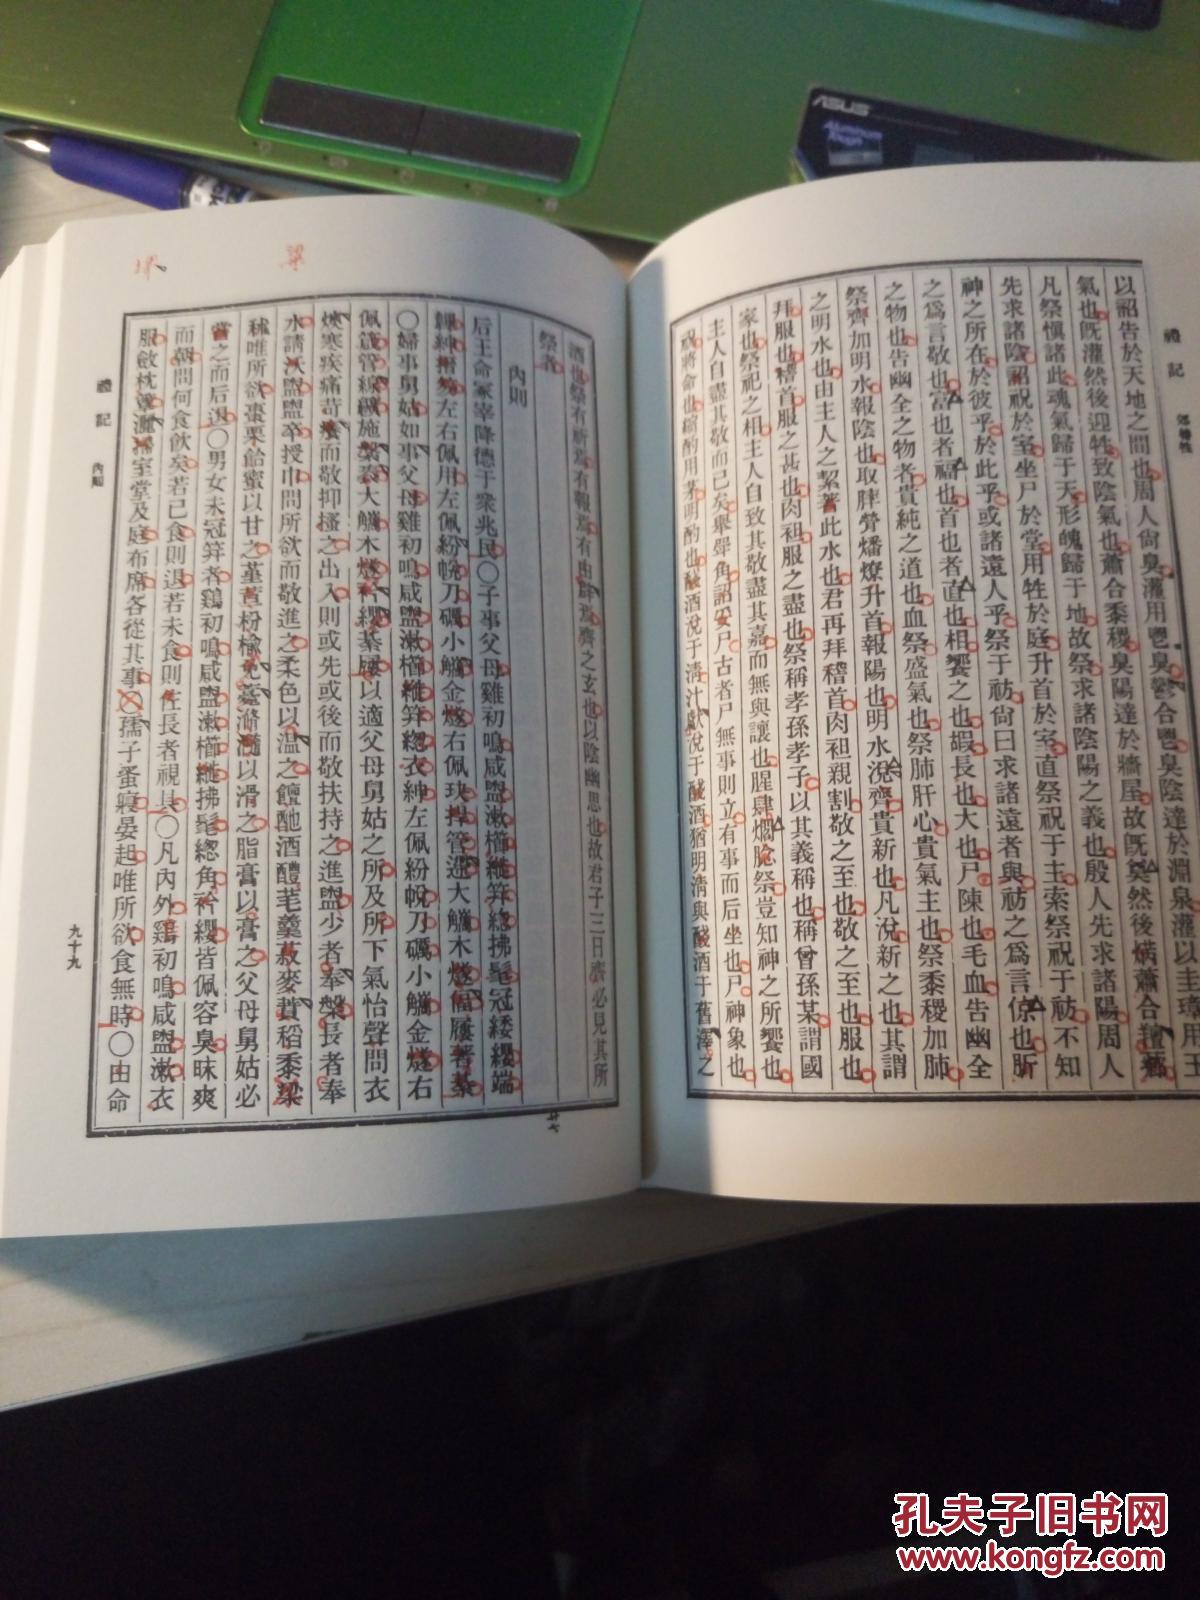 ASUS
禮記
郊特牲
以詔告於天地之間也周人尙臭灌用鬯臭鬱合鬯臭陰達於淵泉灌以圭璋用玉
氣也旣灌然後迎牲致陰氣也蕭合黍稷臭陽達於牆屋故旣奠然後焫蕭合羶薌
凡祭愼諸此魂氣歸于天形魄歸于地故祭求諸陰陽之義也殷人先求諸陽周人
先求諸陰詔祝於室坐尸於堂用牲於庭升首於室直祭祝于主索祭祝于祊不知
神之所在於彼乎於此乎或諸遠人乎祭于祊尙曰求諸遠者與祊之爲言倞也肵
之爲言敬也富也者福也首也者直也相饗之也嘏長也大也尸陳也毛血告幽全
之物也告幽全之物者貴純之道也血祭盛氣也祭肺肝心貴氣主也祭黍稷加肺
祭齊加明水報陰也取膟膋燔燎升首報陽也明水涚齊貴新也凡涚新之也其謂
之明水也由主人之絜著此水也君再拜稽首肉袒親割敬之至也敬之至也服也
拜服也稽首服之甚也肉袒服之盡也祭稱孝孫孝子以其義稱也稱曾孫某謂國
家也祭祀之相主人自致其敬盡其嘉而無與讓也腥肆爓腍祭豈知神之所饗也
主人自盡其敬而已矣舉斝角詔妥尸古者尸無事則立有事而后坐也尸神象也
祝將命也縮酌用茅明酌也醆酒涚于淸汁獻涚于醆酒猶明淸與醆酒于舊澤之
酒也祭有祈焉有報焉有由辟焉齊之玄也以陰幽思也故君子三日齊必見其所
祭者
內則
后王命冢宰降德于衆兆民〇子事父母雞初鳴咸盥漱櫛縰笄緫拂髦冠緌纓端
韠紳搢笏左右佩用左佩紛帨刀礪小觿金燧右佩玦捍管遰大觿木燧偪屨著綦
〇婦事舅姑如事父母雞初鳴咸盥漱櫛縰笄緫衣紳左佩紛帨刀礪小觿金燧右
佩箴管線纊施縏袠大觿木燧衿纓綦屨以適父母舅姑之所及所下氣怡聲問衣
燠寒疾痛苛癢而敬抑搔之出入則或先或後而敬扶持之進盥少者奉槃長者奉
水請沃盥盥卒授巾問所欲而敬進之柔色以溫之饘酏酒醴芼羹菽麥蕡稻黍粱
秫唯所欲棗栗飴蜜以甘之堇荁枌楡免薧滫瀡以滑之脂膏以膏之父母舅姑必
嘗之而后退〇男女未冠笄者雞初鳴咸盥漱櫛縰拂髦緫角衿纓皆佩容臭昧爽
而朝問何食飲矣若已食則退若未食則佐長者視具〇凡內外雞初鳴咸盥漱衣
服斂枕簟灑掃室堂及庭布席各從其事〇孺子蚤寢晏起唯所欲食無時〇由命
禮記
內則
九十九
廿七
粱
孔夫子旧书网
www.kongfz.com